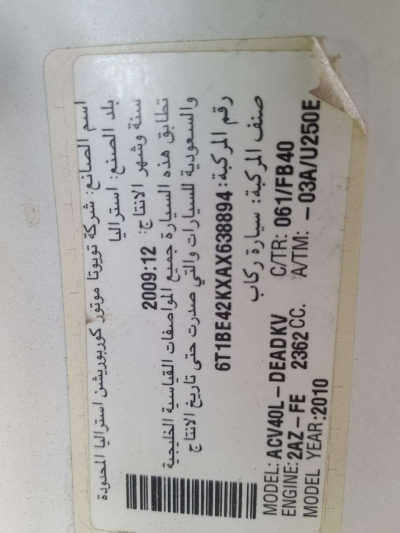 اسم الصانع: شركة تويوتا موتور كوربوريشن استراليا المحدودة
بلد الصنع: استراليا
سنة وشهر الانتاج: 2009:12
تطابق هذه السيارة جميع المواصفات القياسية الخليجية
والسعودية للسيارات والتي صدرت حتى تاريخ الانتاج
رقم المركبة: 6T1BE42KXAX638894
صنف المركبة: سيارة ركاب
MODEL: ACV40L-DEADKV C/TR: 061/FB40
ENGINE: 2AZ-FE 2362CC. A/TM: -03A/U250E
MODEL YEAR:2010